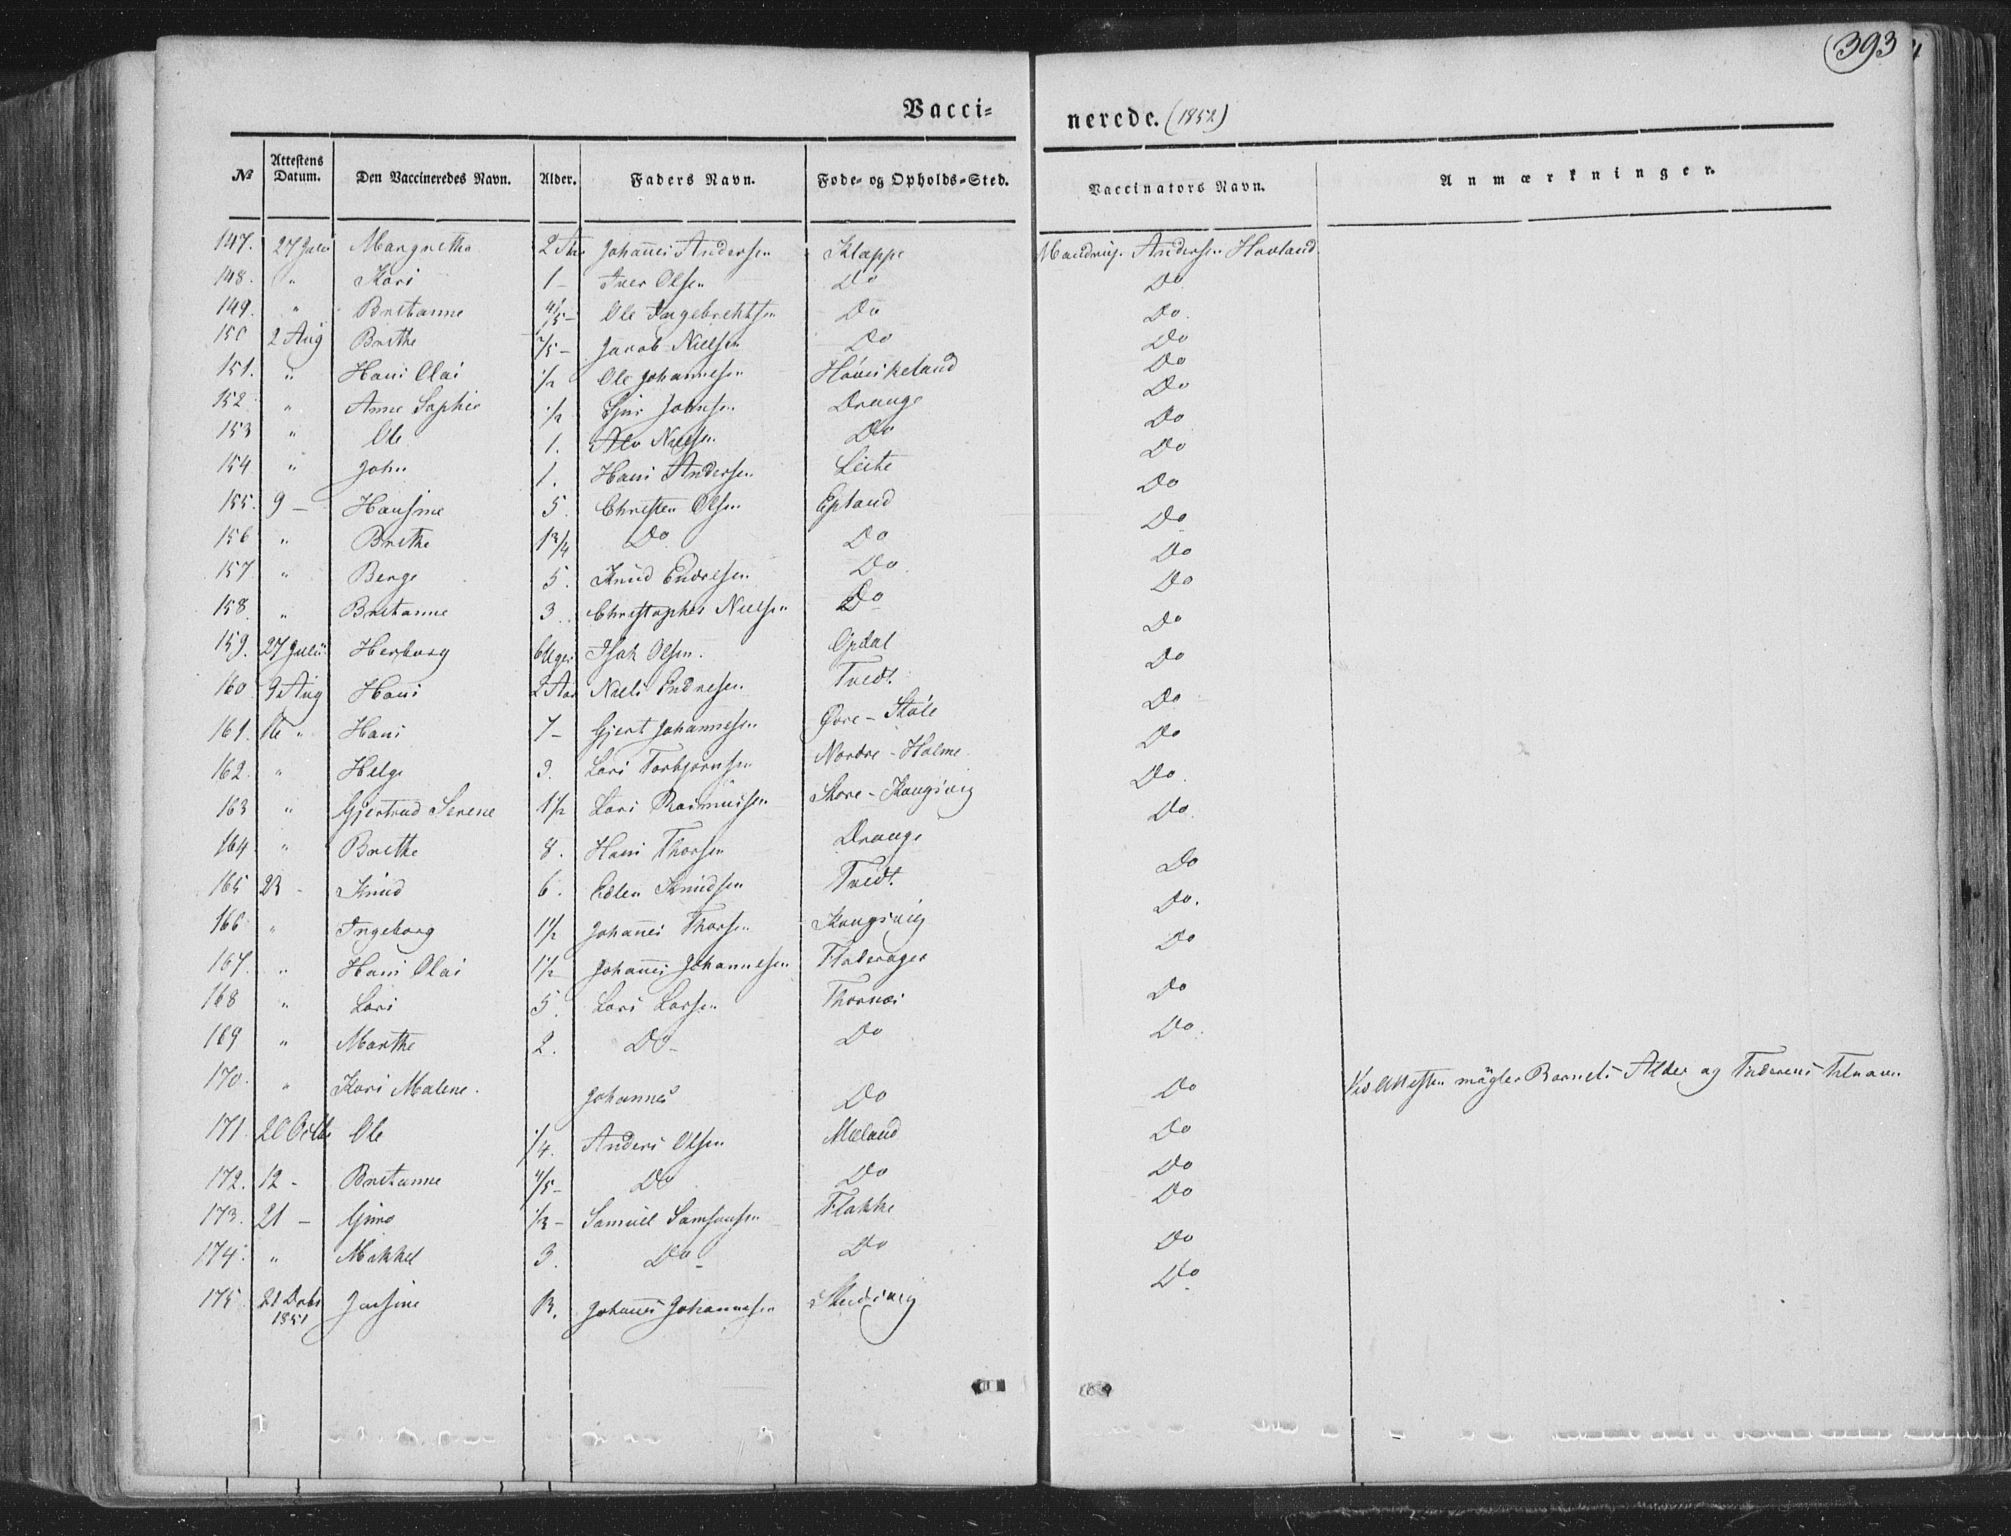 393
Vacci-
nerede. (1852)
№ Attestens Datum. Den Vaccineredes Navn. Alder. Faders Navn. Føde- og Opholds-Sted. Vaccinators Navn. Anmærkninger.
147. 27 Julii Margrethe 2 Aar Johannes Andersen Kleppe Mandrup Andersen Hovland
148. " Kari 1 - Iver Olsen Do Do
149. " Britanne 4/5 - Ole Ingebrichtsen Do Do.
150 2 Aug Brithe /5 - Jacob Nielsen Do Do
151. " Hans Olai 1/2 Ole Johannesen Do
152 " Anne Sophie 1/2 Johnsen Drange Do
153 " Ole 1. Nielsen Do Do
154 " John 1. Hans Andersen Leite Do
155. 9 - Hansine 5. Christen Olsen Epland Do
156 " Brithe 1 3/4 Do Do Do
157 " Berge 5. Knud Endresen Do Do
158. " Britanne 3. Christopher Nielsen Do Do
159. 27 Julii Herborg 6 Uger Isak Olsen. Opdal Do
160 9 Aug Hans 2 Aar Niels Endresen Tvedt. Do
161. 16 " Hans 7 - Gjert Johannesen Øvre - Støle Do
162. " Helge 3. Lars Torbjørnsen Nordre - Holme Do
163 " Gjertrud Serene 1 1/2 Lars Rasmussen Store - Kongsvig Do.
164 " Brithe 8. Hans Thorsen Drange Do.
165 23 - Knud 6. Knudsen Tvedt. Do
166 " Ingeborg 1 1/2 Johannes Thorsen Kongsvig Do.
167. " Hans Olai 1 1/2 Johannes Johannesen Flaterager Do
168 " Lars 5. Lars Larsen Thornæs Do
169 " Marthe 2. Do - Do Do.
170. " Kari Malene. Johannes Do Do Ved Attesten mangler Barnets Alder og Faderens Tilnavn
171. 20 Octbr Ole 1/4. Anders Olsen Mæland Do
172. 12 - Britanne 4/5 - Do Do Do
173. 21 - Guro 1/3 - Samuel Samsonsen Flakke Do
174. " Mikkel 3. Do - Do Do
175 21 Decbr 1851 Johannes Johannesen Do